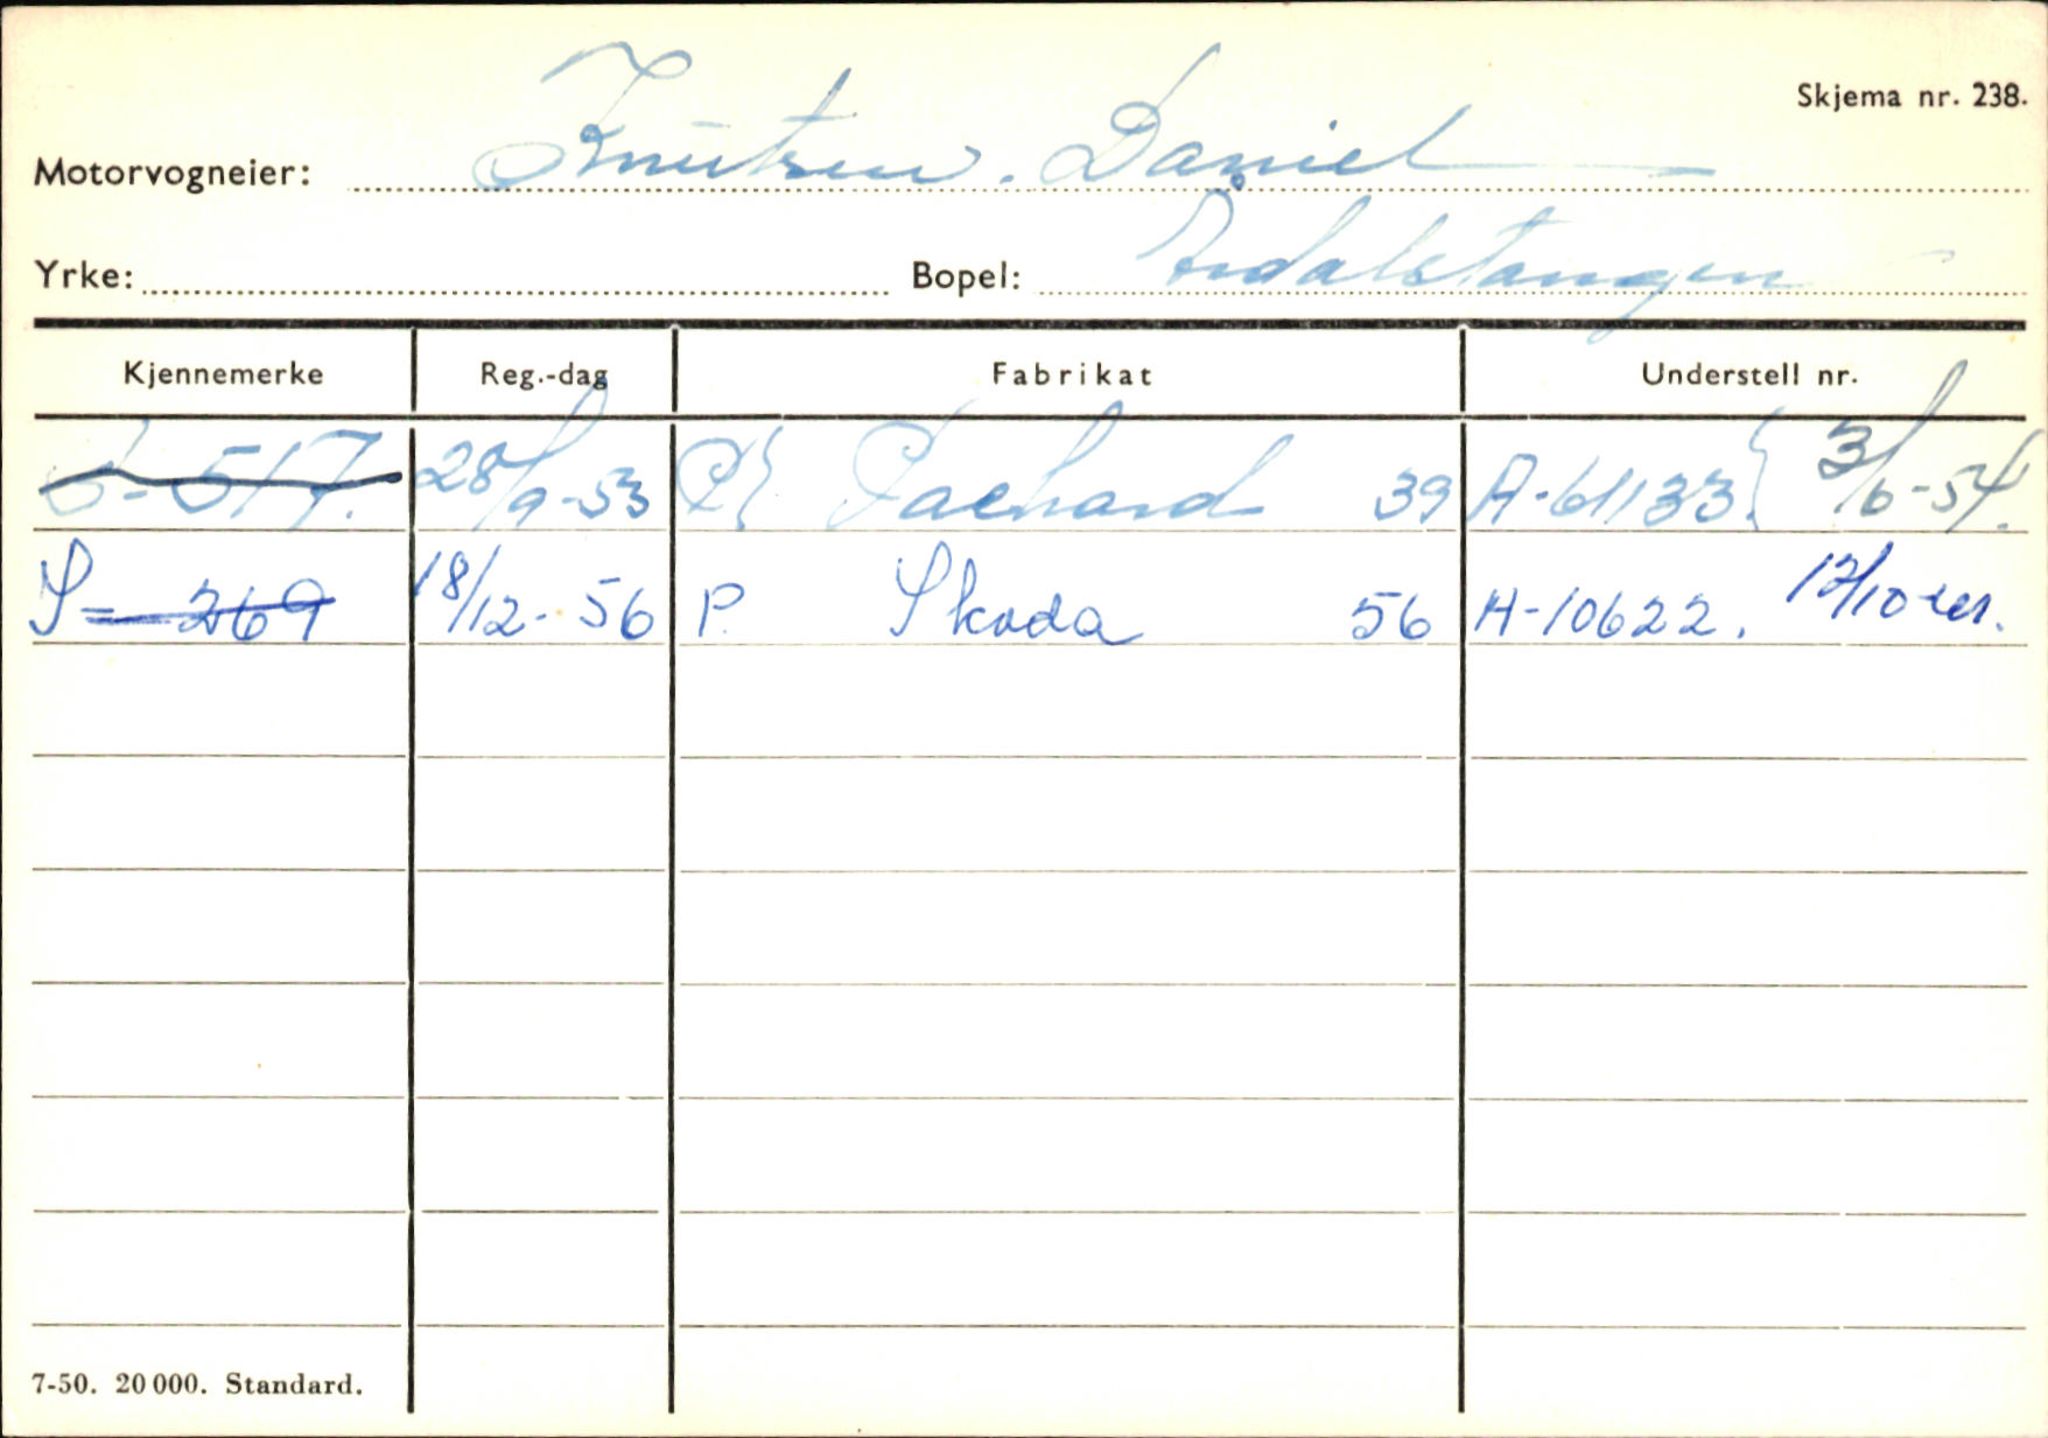 Skjema nr. 238.
Motorvogneier: Knutsen. Daniel
Yrke: Bopel: Årdalstangen
Kjennemerke Reg.-dag Fabrikat Understell nr.
S-517. 28/9-53 P Packard 39 A-61133. 3/6-54.
S-269 18/12-56 P. Skoda 56 H-10622. 12/10
7-50. 20 000. Standard.